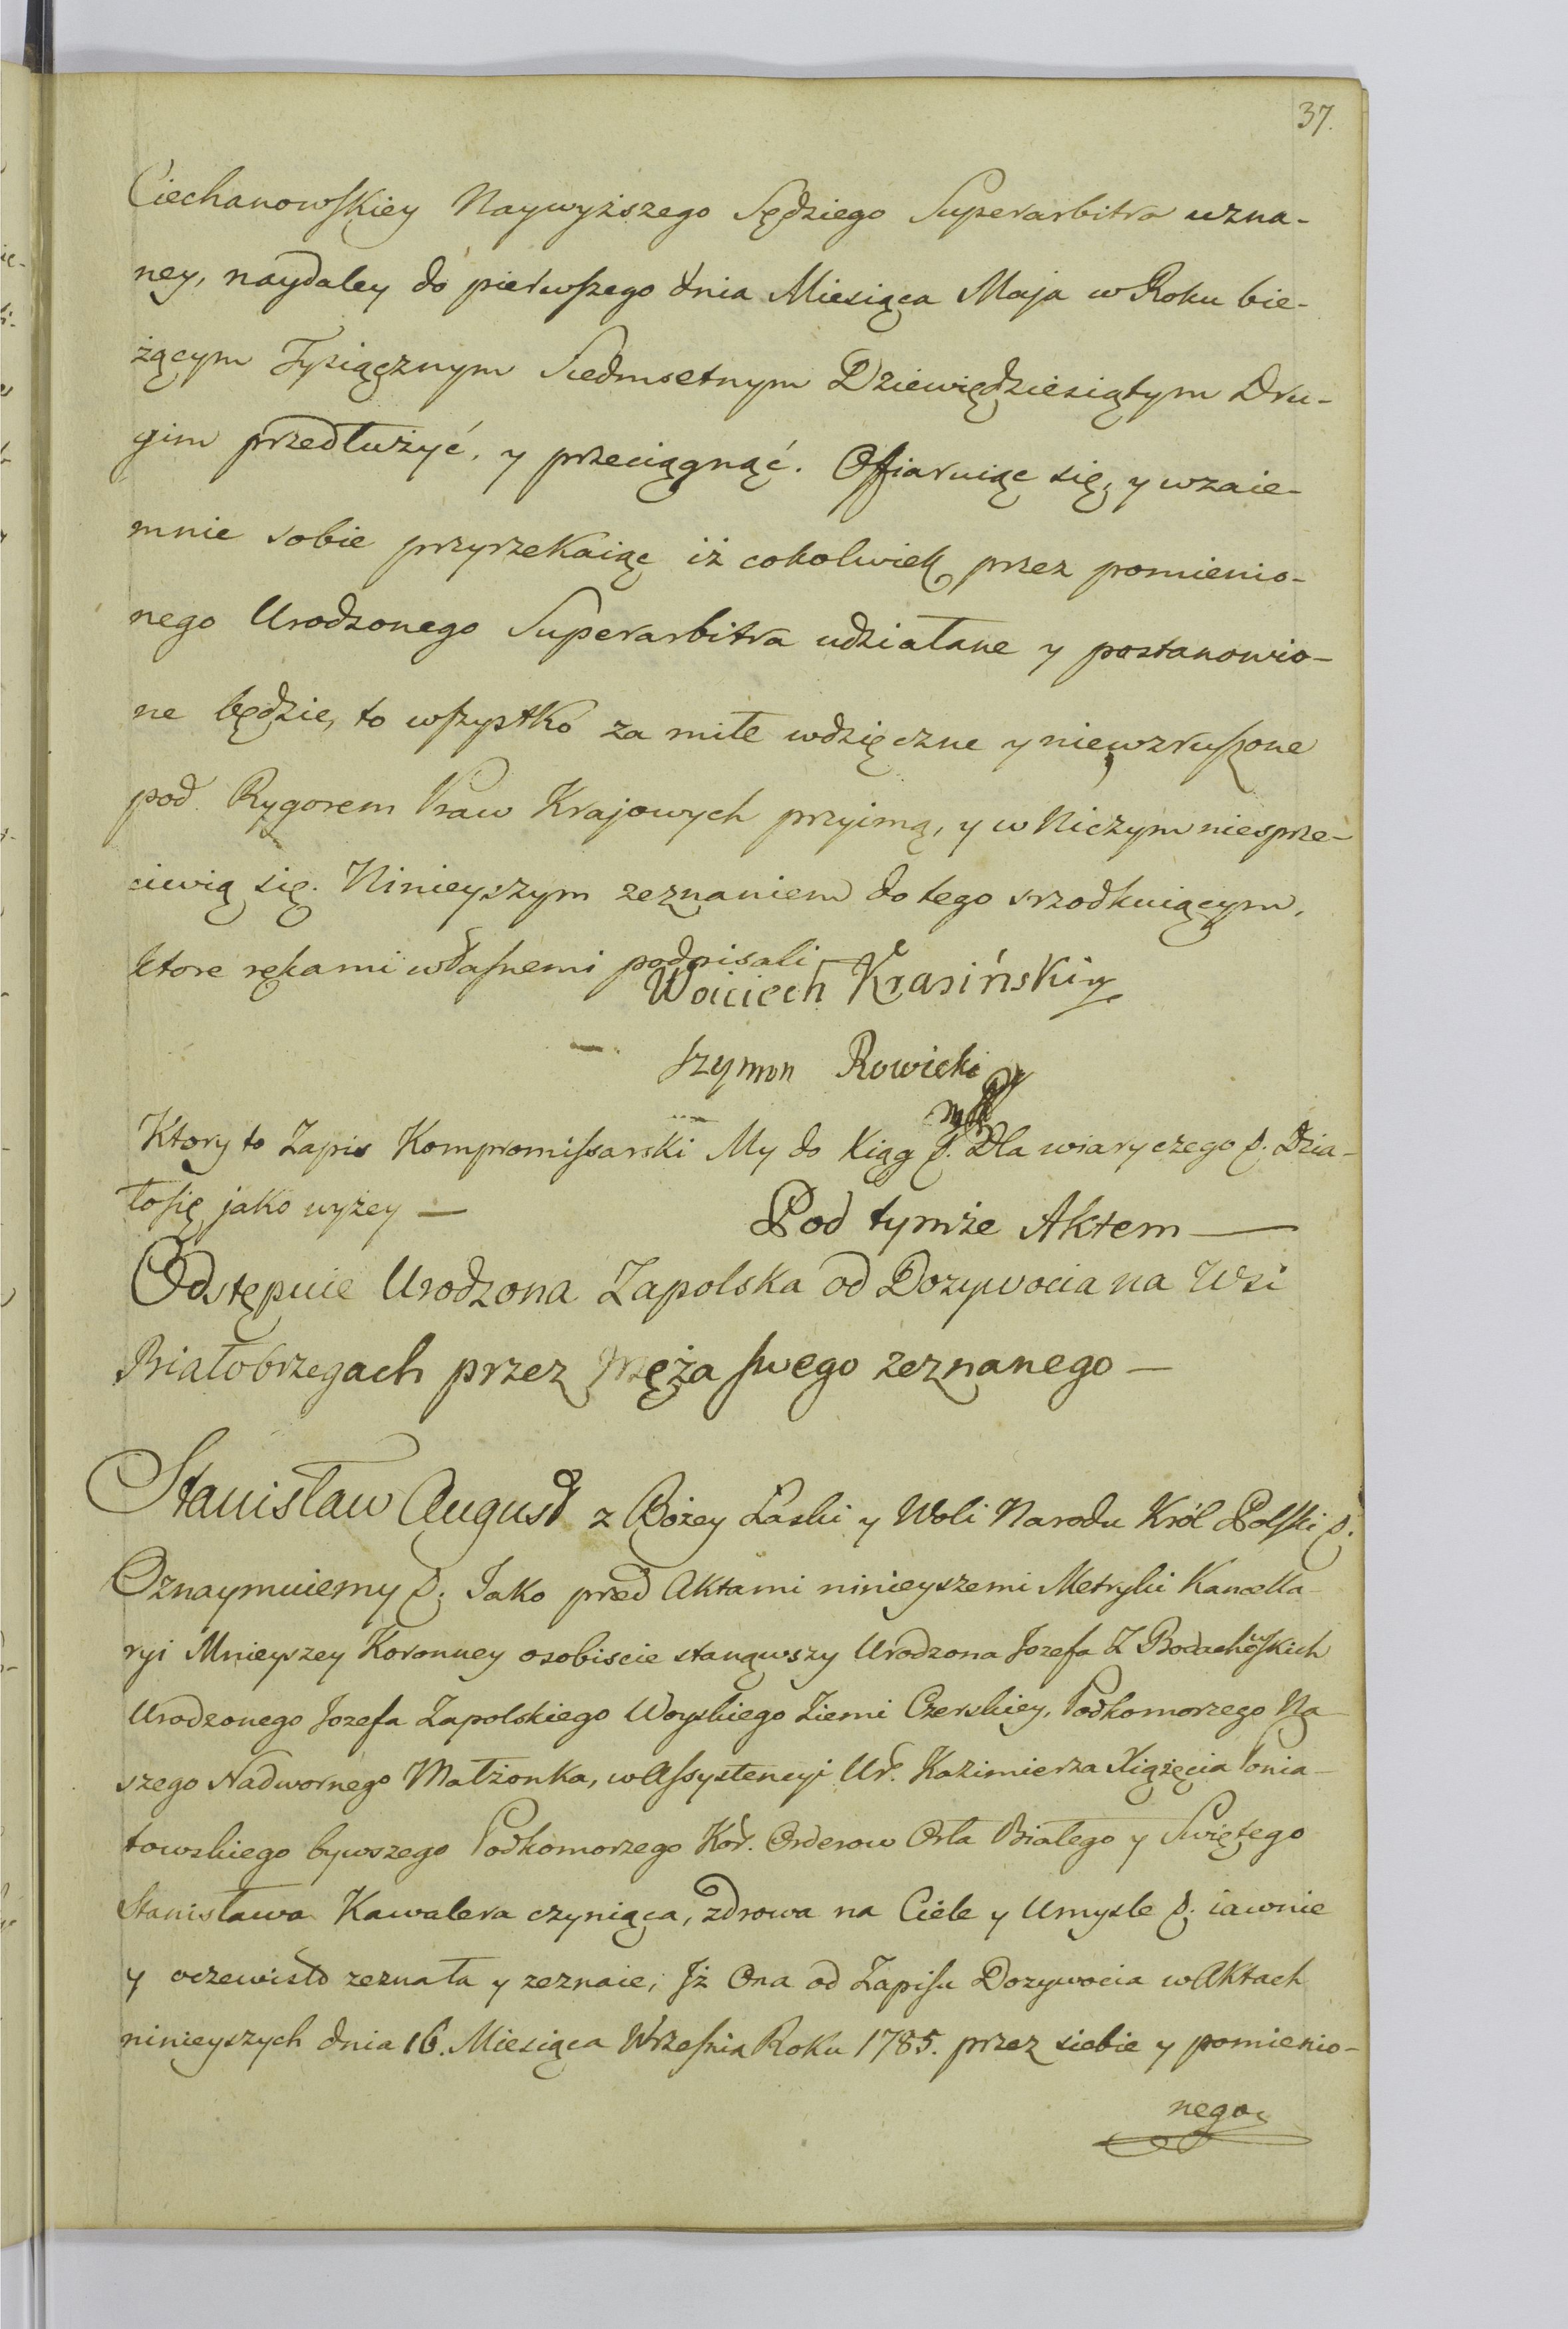 37.
Ciechanowskiey Naywyższego Sędziego Superarbitra uzna-
ney, naydaley do pierwszego dnia Miesiąca Maja w Roku bie-
żącym Tysiącznym Siedmsetnym Dziewiędziesiątym Dru-
gim przedłużyć, y przeciągnąć. Offiaruiąc się, y wzaie-
mnie sobie przyrzekaiąc iż cokolwiek przez pomienio-
nego Urodzonego Superarbitra udziałane y postanowio-
ne będzie, to wszystko za miłe wdzięczne y niewzruszone
pod Rygorem Praw Krajowych przyimą, y w Niczym niesprze-
ciwią się. Ninieyszym zeznaniem do tego srzodkuiącym,
ktore rękami własnemi podpisali
Woiciech Krasiński
Szymon Rowicki
mp
Ktory to Zapis Kompromissarski My do Xiąg p. Dla wiary czego p. Dzia-
ło się jako wyżey —
Pod tymże Aktem —
Odstępuie Urodzona Zapolska od Dozywocia na Wsi
Białobrzegach przez Męża swego zeznanego —
Stanisław August z Bożey Łaski y Woli Narodu Król Polski p.
Oznaymuiemy p. Jako przed Aktami ninieyszemi Metryki Kancella-
ryi Mnieyszey Koronney osobiscie stanąwszy Urodzona Jozefa Z Bodzechowskich
Urodzonego Jozefa Zapolskiego Woyskiego Ziemi Czerskiey, Podkomorzego Na-
szego Nadwornego Małżonka, w Assystencyi Ur. Kazimierza Xiążęcia Ponia-
towskiego bywszego Podkomorzego Kor. Orderow Orła Białego y Swiętego
Stanisława Kawalera czyniąca, zdrowa na Ciele y Umysle p. iawnie
y oczewisto zeznała y zeznaie, Jż Ona od Zapisu Dozywocia w Aktach
ninieyszych dnia 16. Miesiąca Wrzesnia Roku 1785. przez siebie y pomienio-
nego